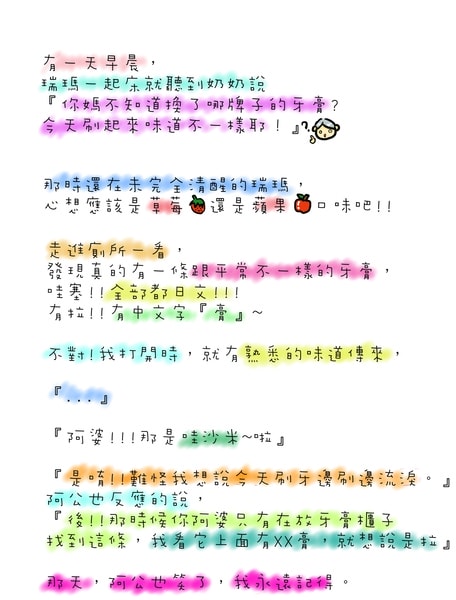 有一天早晨，
瑞瑪一起床就聽到奶奶說
『你媽不知道換了哪牌子的牙膏?
今天刷起來味道不一樣耶！』?
那時還在未完全清醒的瑞瑪，
心想應該是草莓還是蘋果口味吧!!
走進廁所一看，
發現真的有一條跟平常不一樣的牙膏，
哇塞!!全部都日文!!!
有拉!!有中文字『膏』~
不對!我打開時，就有熟悉的味道傳來，
『...』
『阿婆!!!那是哇沙米~啦』
『是唷!!難怪我想說今天刷牙邊刷邊流淚。』
阿公也反應的說，
『後!!那時候你阿婆只有在放牙膏櫃子
找到這條，我看它上面有XX膏，就想說是拉』
那天，阿公也笑了，我永遠記得。